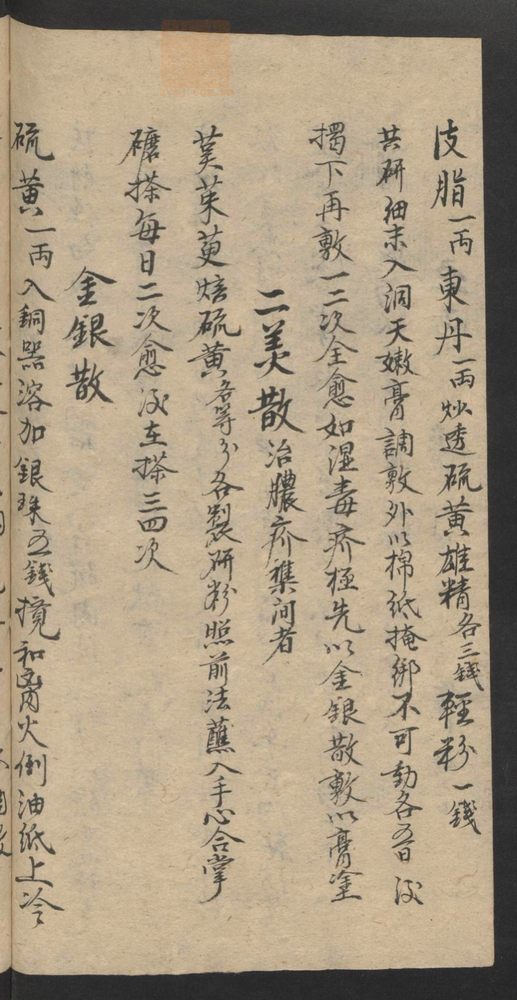 皮脂一両東丹一両炒透硫黄雄精各三錢輕粉一錢
共研細末入洞天嫩膏調敷外以棉紙掩绑不可動各五日後
揭下再敷一二次全愈如湿毒疥極先以金銀散敷以膏塗
二美散治膿疥集间者
吴茱萸焙硫黄各等分各製研粉照前法蘸入手心合掌
磨搽每日二次愈後在搽三四次
金銀散
硫黄一両入銅器溶加銀珠五錢攪和离火倒油紙上冷